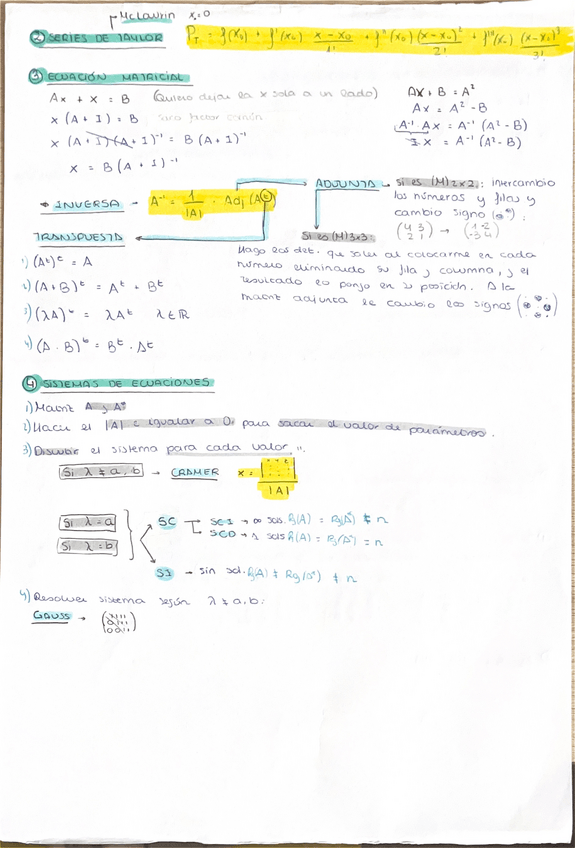 McLaurin x₀=0
② SERIES DE TAYLOR P_T = f(x₀) + f'(x₀) (x-x₀)/1! + f''(x₀) (x-x₀)²/2! + f'''(x₀) (x-x₀)³/3!
③ ECUACIÓN MATRICIAL
Ax + x = B (Quiero dejar la x sola a un lado)
x (A + I) = B Saco factor común
x (A + I) (A + I)⁻¹ = B (A + I)⁻¹
x = B (A + I)⁻¹
AX + B = A²
AX = A² - B
A⁻¹ AX = A⁻¹ (A² - B)
I·X = A⁻¹ (A² - B)
INVERSA → A⁻¹ = 1/|A| · Adj (Aᵗ)
ADJUNTA → Si es (M) 2x2: intercambio
los números y filas y
cambio signo
(4 3 / 2 1) → (1 -2 / -3 4)
Si es (M) 3x3:
Hago los det. que salen al colocarme en cada
número eliminando su fila y columna, y el
resultado lo pongo en su posición. A la
matriz adjunta le cambio los signos
TRANSPUESTA
1) (Aᵗ)ᵗ = A
2) (A + B)ᵗ = Aᵗ + Bᵗ
3) (λA)ᵗ = λAᵗ λ ∈ ℝ
4) (A · B)ᵗ = Bᵗ · Aᵗ
④ SISTEMAS DE ECUACIONES
1) Matriz A y A*
2) Hacer el |A| e igualar a 0, para sacar el valor de parámetros.
3) Discutir el sistema para cada valor
Si λ ≠ a, b → CRAMER x = /|A|
Si λ = a
Si λ = b
SC → SCI → ∞ sols. Rg(A) = Rg(A*) ≠ n
SCD → 1 sols Rg(A) = Rg(A*) = n
SI → sin sol. Rg(A) ≠ Rg(A*) ≠ n
4) Resolver sistema según λ ≠ a, b:
GAUSS →